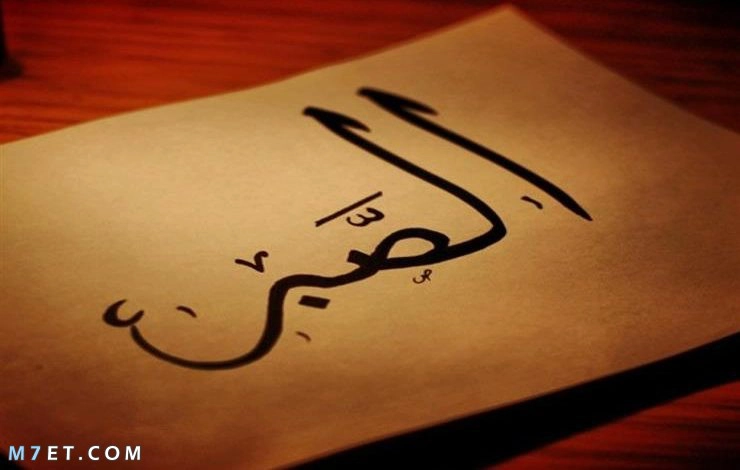 الصَّبر
M7ET.COM